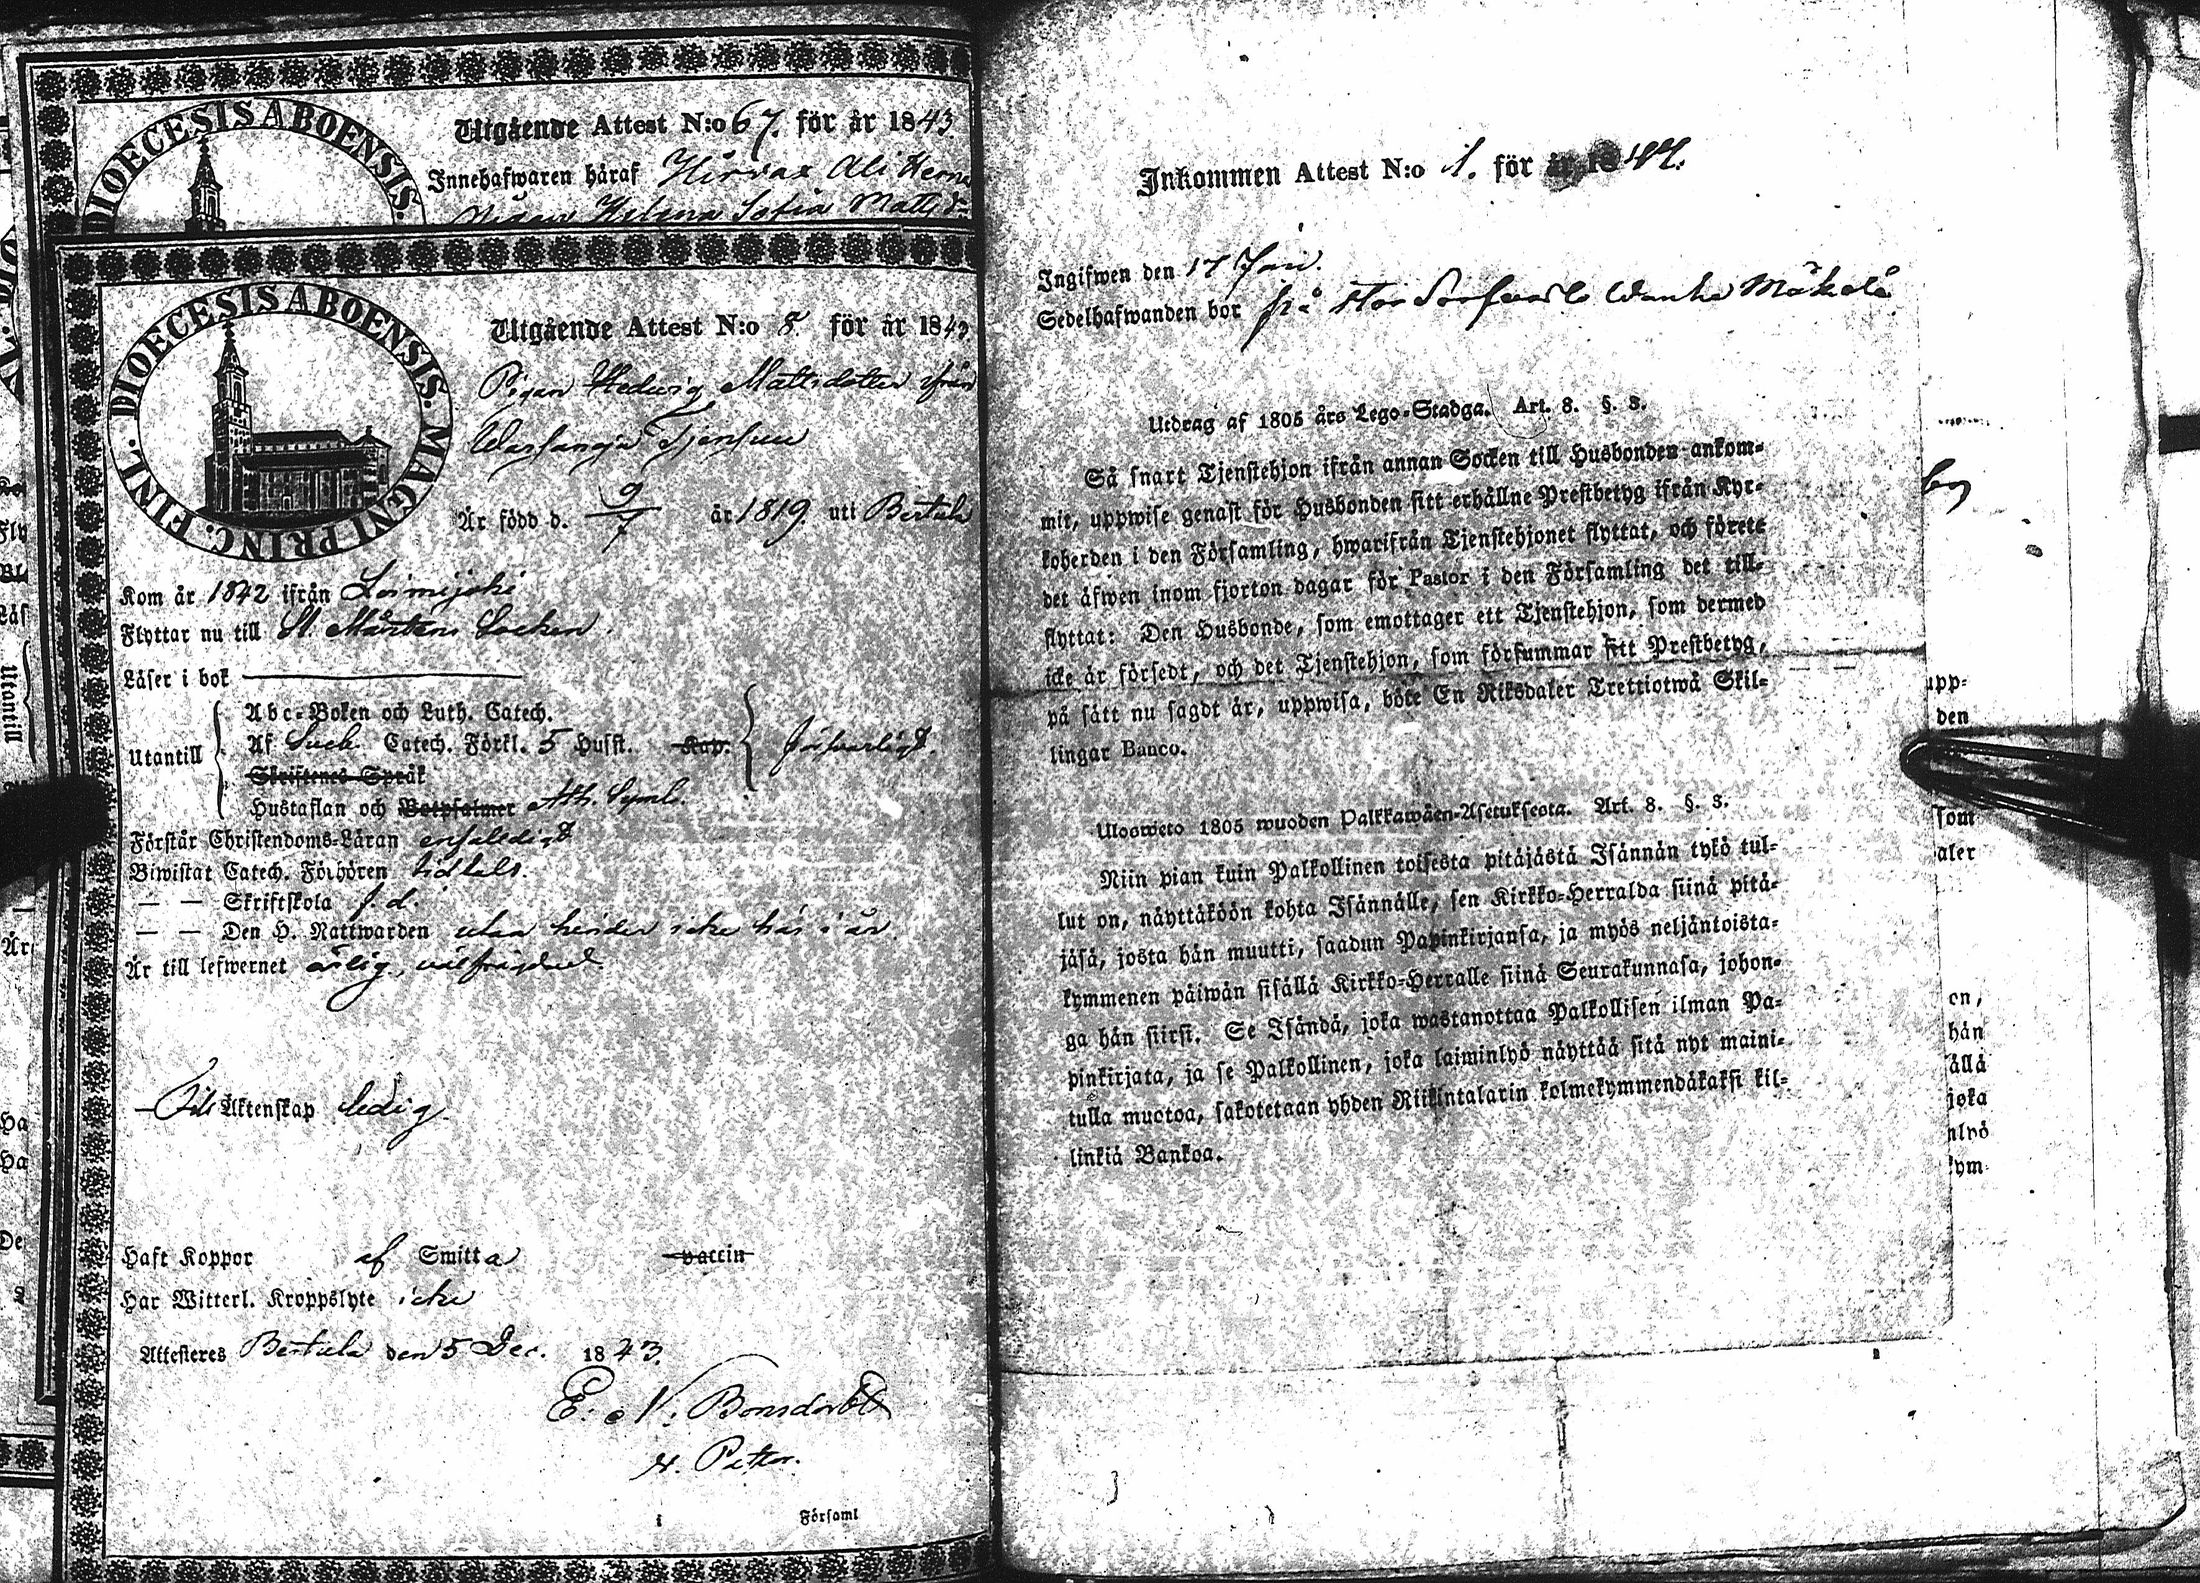 DIOECESIS ABOENSIS.
Utgående Attest N:o 67. för år 1843.
Innehafwaren häraf Hirvas
Pigan Helena Sofia Matts d:r
DIOECESIS ABOENSIS. MAGNI PRINC. FINL.
Utgående Attest N:o 8 för år 1843
Pigan Hedwig Mattsdotter ifrån
Är född d. 9/7 år 1819. uti Bertula
Kom år 1842 ifrån Loimijoki
Flyttar nu till St. Mårtens Socken.
Läser i bok
Utantill
Abc-Boken och Luth. Catech.
Af Sveb. Catech. Förkl. 5 Husst. Kap. försvarligt.
Skriftenes Språk
Hustaflan och Botpsalmer Ath. Symb.
Förstår Christendoms-Läran enfaldigt
Biwistat Catech. Förhören tidtals.
— — Skriftskola f. d.
— — Den H. Nattwarden utan hinder icke här i år.
Är till lefwernet ärlig, välfrägdad.
Till Äktenskap ledig.
Haft Koppor af Smitta vaccin
Har Witterl. Kroppslyte icke
Attesteres Bertula den 5 Dec. 1843.
E. N. Bonsdorff
Församl
Inkommen Attest N:o 1. för år 1844.
Ingifwen den 17 Jan.
Sedelhafwanden bor på stor Mäkelä
Utdrag af 1805 års Lego-Stadga. Art. 8. §. 3.
Så snart Tjenstehjon ifrån annan Socken till Husbonden ankom-
mit, uppwise genast för Husbonden sitt erhållne Prestbetyg ifrån Kyr-
koherden i den Församling, hwarifrån Tjenstehjonet flyttat, och förete
det äfwen inom fjorton dagar för Pastor i den Församling det till-
flyttat: Den Husbonde, som emottager ett Tjenstehjon, som dermed
icke är försedt, och det Tjenstehjon, som försummar sitt Prestbetyg,
på sätt nu sagdt är, uppwisa, böte En Riksdaler Trettiotwå Skil-
lingar Banco.
Ulosweto 1805 wuoden Palkkawäen-Asetuksesta. Art. 8. §. 3.
Niin pian kuin Palkollinen toisesta pitäjästä Isännän tykö tul-
lut on, näyttäköön kohta Isännälle, sen Kirkko-Herralda siinä pitä-
jäsä, josta hän muutti, saadun Papinkirjansa, ja myös neljäntoista-
kymmenen päiwän sisällä Kirkko-Herralle siinä Seurakunnasa, johon-
ga hän siirsi. Se Isändä, joka wastanottaa Palkollisen ilman Pa-
pinkirjata, ja se Palkollinen, joka laiminlyö näyttää sitä nyt maini-
tulla muotoa, sakotetaan yhden Riikintalarin kolmekymmendäkaksi kil-
linkiä Bankoa.